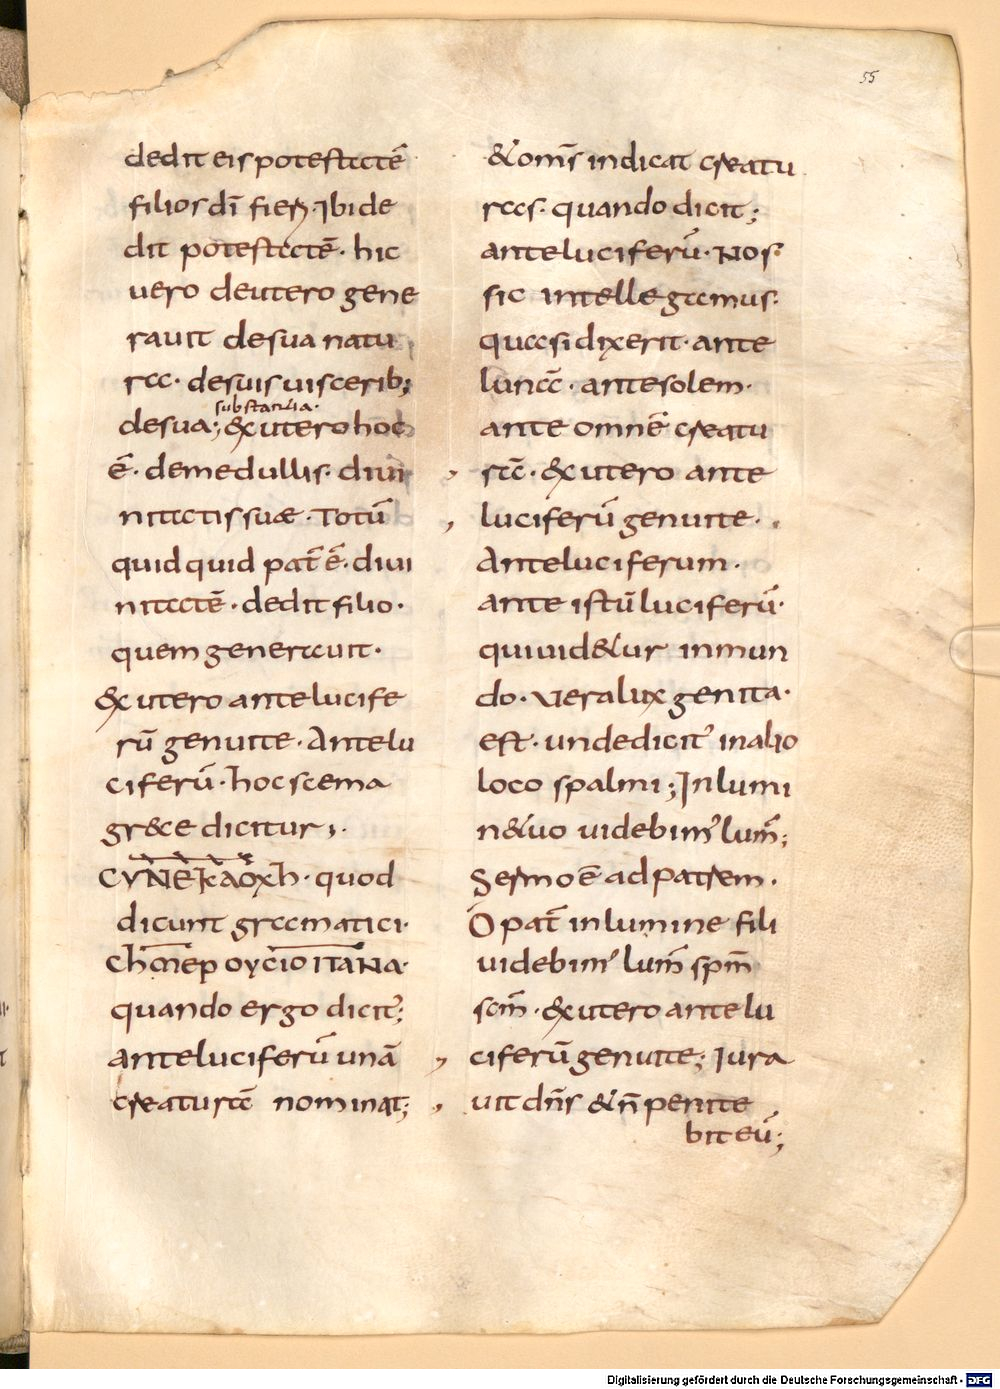 55
dedit eis potestatē
filios dī fieri. Ibi de
dit potestatē. hic
uero de utero gene
rauit de sua natu
ra. de suis uisceribꝫ
substantia.
de sua; & ex utero hoc
ē. de medullis. diui
nitatis suæ. Totū
quid quid pat̄ ē. diui
nitatē. dedit filio.
quem generauit.
Ex utero ante lucife
rū genui te. Ante lu
ciferū. hoc scema
græce dicitur;.
quod
dicunt grammatici.
quando ergo dicit;
ante luciferū unā
creaturā nominat;
& om̄s indicat creatu
ras. quando dicit;
ante luciferū. Nos
sic intellegamus.
quasi dixerit. ante
lunā. ante solem.
ante omnē creatu
rā. ex utero ante
luciferū genui te.
Ante luciferum.
ante istū luciferū.
qui uid&ur in mun
do. Vera lux genita.
est. unde dicit' in alio
loco spalmi; In lumi
ne tuo uidebim' lum̄;
Sermo ē ad Patrem.
O pat̄ in lumine fili
uidebim' lum̄ spm̄
scm̄. ex utero ante lu
ciferū genui te; Iura
uit dn̄s & n̄ penite
bit eū;
Digitalisierung gefördert durch die Deutsche Forschungsgemeinschaft - DFG